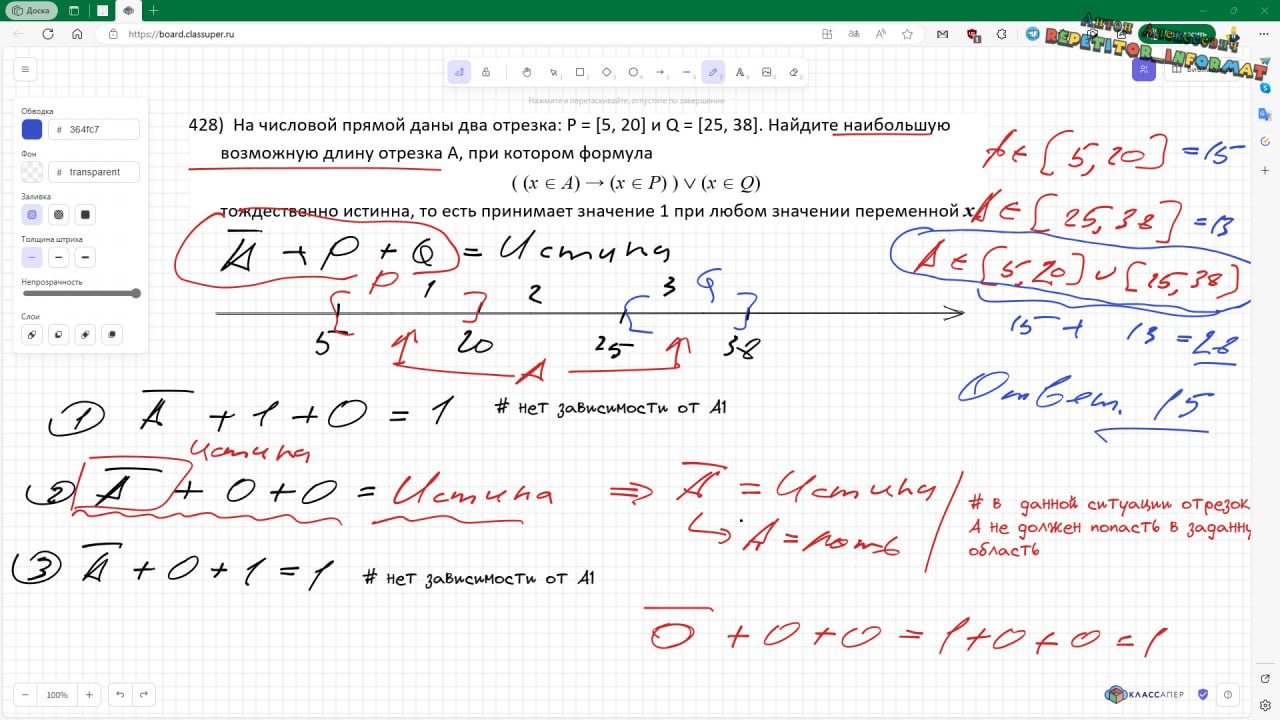 Доска
https://board.classuper.ru
Антон Алексеевич
REPETITOR_INFORMAT
Нажмите и перетаскивайте, отпустите по завершении
Обводка
# 364fc7
Фон
# transparent
Заливка
Толщина штриха
Непрозрачность
Слои
428) На числовой прямой даны два отрезка: P = [5, 20] и Q = [25, 38]. Найдите наибольшую
возможную длину отрезка A, при котором формула
( (x ∈ A) → (x ∈ P) ) ∨ (x ∈ Q)
тождественно истинна, то есть принимает значение 1 при любом значении переменной x
A ∈ [5, 20] = 15
A ∈ [25, 38] = 13
A ∈ [5, 20] ∪ [25, 38]
15 + 13 = 28
Ответ. 15
A̅ + P + Q = Истина
P 1 2 3 Q
5 20 25 38
A
1) A̅ + 1 + 0 = 1 # нет зависимости от A1
Истина
2) A̅ + 0 + 0 = Истина ⇒ A̅ = Истина
↳ A = ложь
# в данной ситуации отрезок
A не должен попасть в заданну
область
3) A̅ + 0 + 1 = 1 # нет зависимости от A1
0̅ + 0 + 0 = 1 + 0 + 0 = 1
100%
КЛАССАПЕР